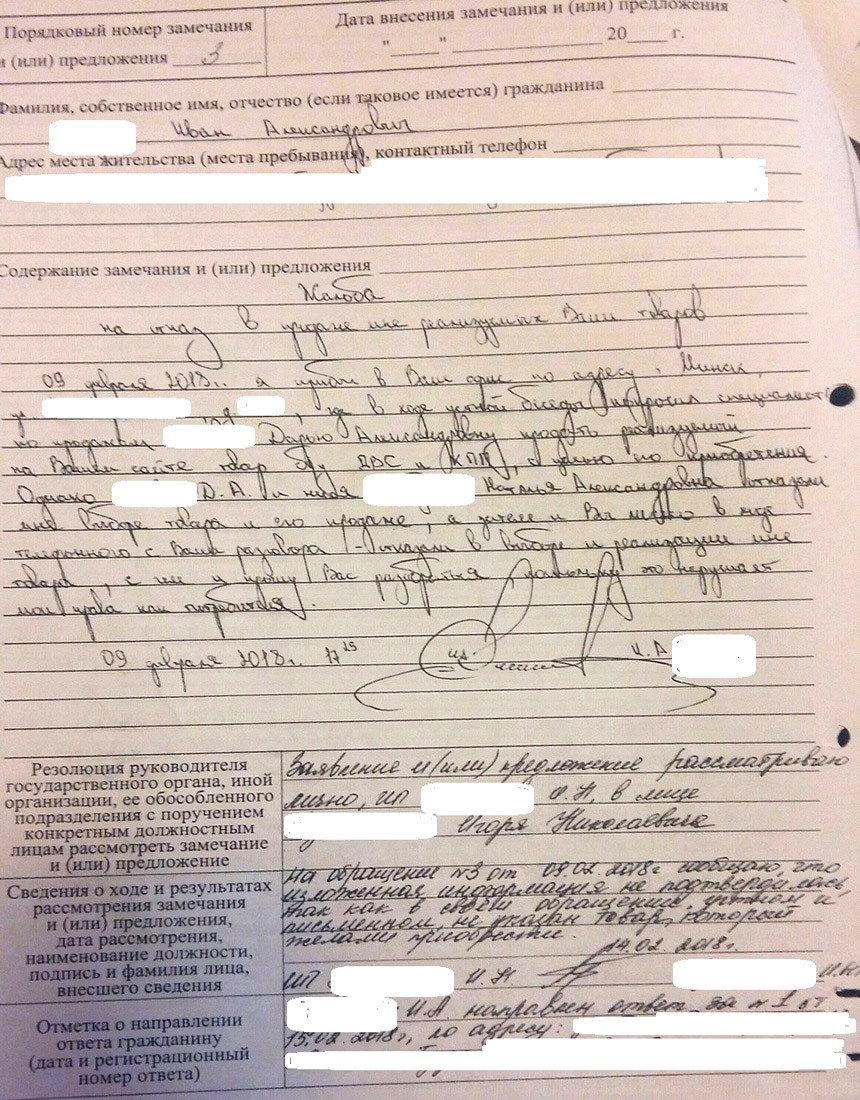 Порядковый номер замечания
и (или) предложения 3
Дата внесения замечания и (или) предложения
"____" ____________ 20___ г.
Фамилия, собственное имя, отчество (если таковое имеется) гражданина
Иван Александрович
Адрес места жительства (места пребывания), контактный телефон
Содержание замечания и (или) предложения
Жалоба
на отказ в продаже мне реализуемых Вами товаров
09 февраля 2018г. я прибыл в Ваш офис по адресу г. Минск,
ул. , где в ходе устной беседы попросил специалиста
по продажам Дарью Александровну продать реализуемый
на Вашем сайте товар б/у ДВС и КПП, с целью его приобретения.
Однако Д.А. и некая Наталья Александровна отказали
мне в выборе товара и его продаже, а затем и Вы лично в ходе
телефонного с Вами разговора - отказали в выборе и реализации мне
товара, с чем и прошу Вас разобраться, поскольку это нарушает
мои права как потребителя.
09 февраля 2018г. 17 29 И.А
Резолюция руководителя
государственного органа, иной
организации, ее обособленного
подразделения с поручением
конкретным должностным
лицам рассмотреть замечание
и (или) предложение
Заявление и(или) предложение рассматриваю
лично, ИП И.Н, в лице
Игоря Николаевича
Сведения о ходе и результатах
рассмотрения замечания
и (или) предложения,
дата рассмотрения,
наименование должности,
подпись и фамилия лица,
внесшего сведения
На обращение №3 от 09.02.2018г сообщаю, что
изложенная информация не подтвердилась,
так как в своем обращении, устном и
письменном, не указан товар, который
желали приобрести.
14.02.2018г.
ИП И.Н И.Н
Отметка о направлении
ответа гражданину
(дата и регистрационный
номер ответа)
И.А. направлен ответ за №1 от
15.02.2018г, по адресу: